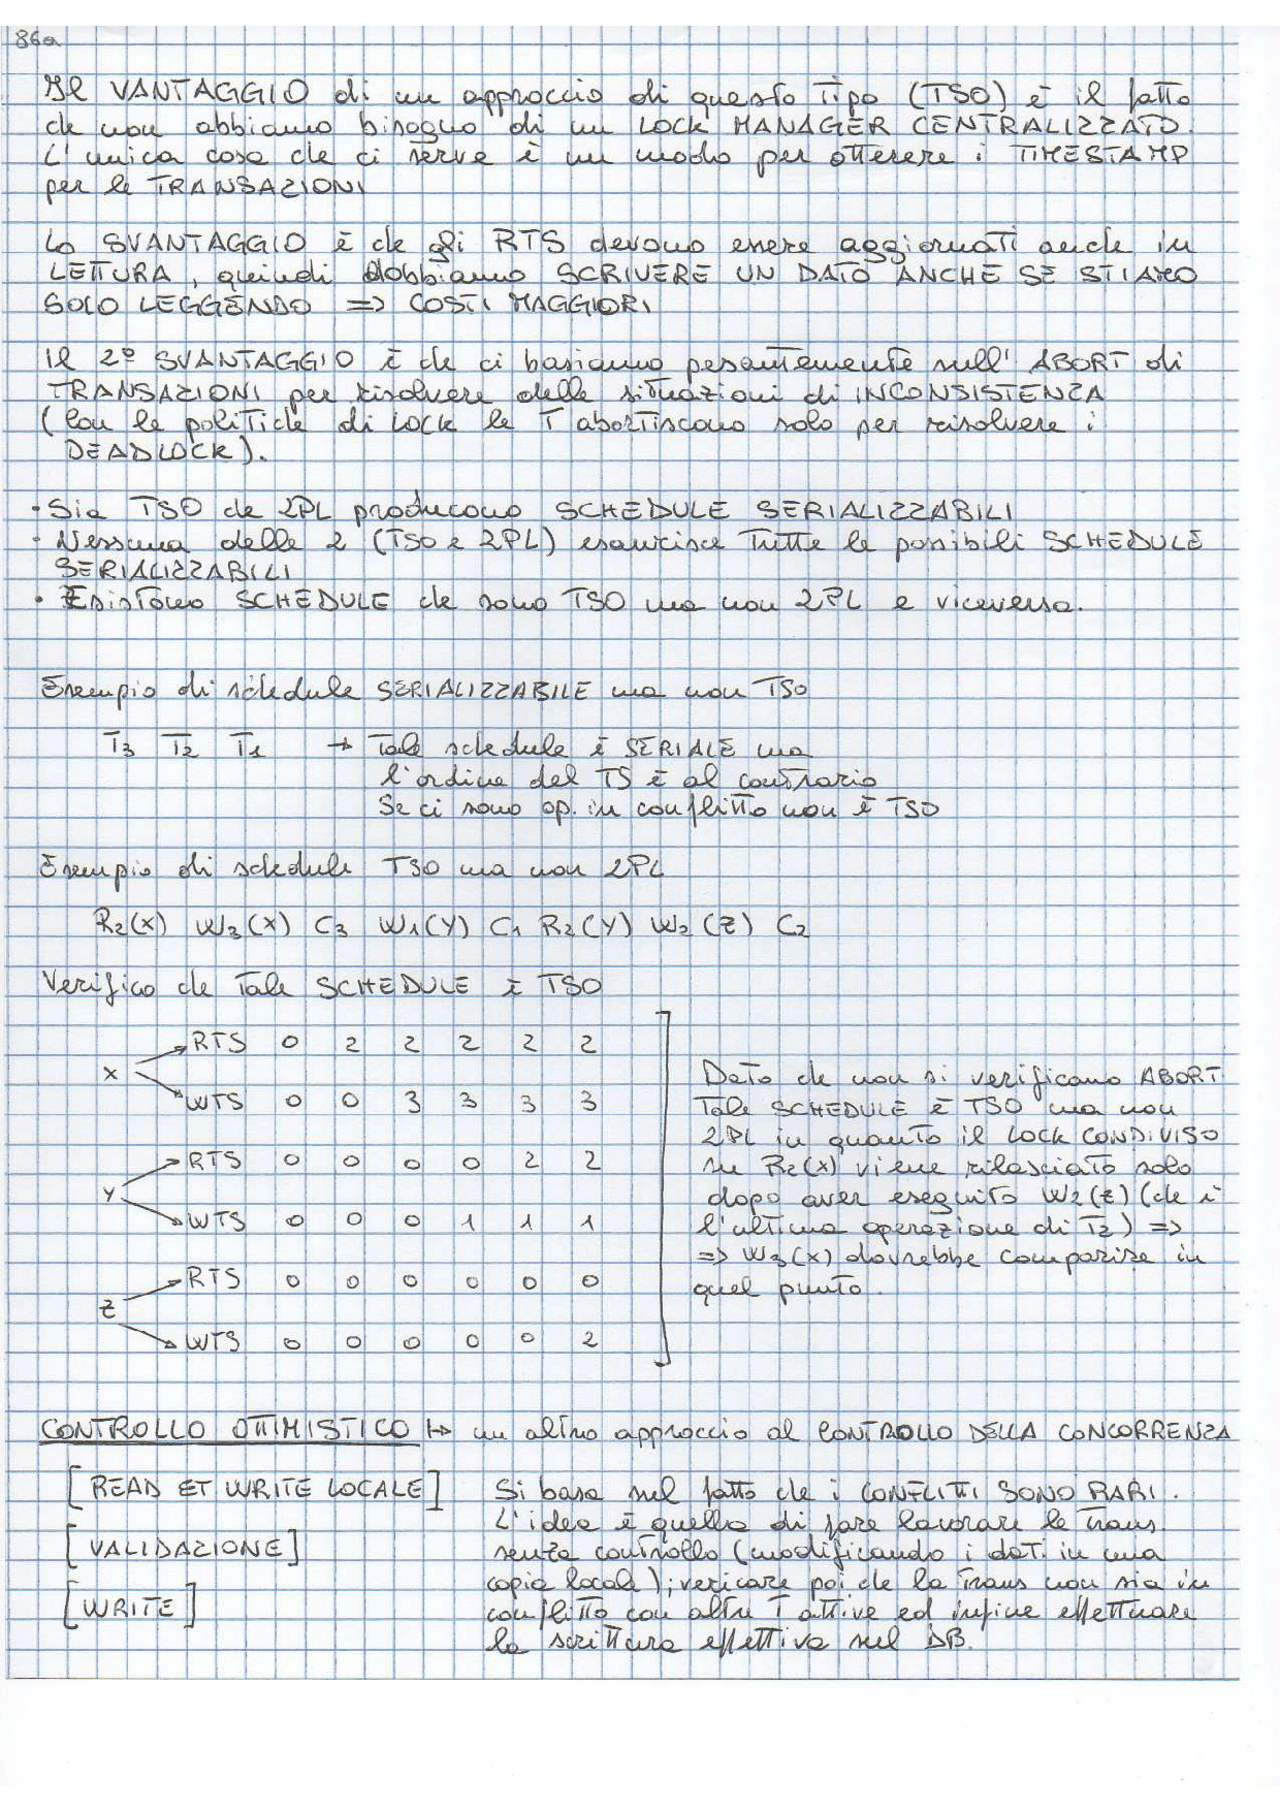 86a
Il VANTAGGIO di un approccio di questo tipo (TSO) è il fatto
che non abbiamo bisogno di un LOCK MANAGER CENTRALIZZATO.
L'unica cosa che ci serve è un modo per ottenere i TIMESTAMP
per le TRANSAZIONI
Lo SVANTAGGIO è che gli RTS devono essere aggiornati anche in
LETTURA, quindi dobbiamo SCRIVERE UN DATO ANCHE SE STIAMO
SOLO LEGGENDO => COSTI MAGGIORI
Il 2º SVANTAGGIO è che ci basiamo pesantemente sull'ABORT di
TRANSAZIONI per risolvere delle situazioni di INCONSISTENZA
(Con le politiche di LOCK le T abortiscono solo per risolvere i
DEADLOCK).
· Sia TSO che 2PL producono SCHEDULE SERIALIZZABILI
· Nessuna delle 2 (TSO e 2PL) esaurisce tutte le possibili SCHEDULE
SERIALIZZABILI
· Esistono SCHEDULE che sono TSO ma non 2PL e viceversa.
Esempio di schedule SERIALIZZABILE ma non TSO
T3 T2 T1 → Tale schedule è SERIALE ma
l'ordine del TS è al contrario
Se ci sono op. in conflitto non è TSO
Esempio di schedule TSO ma non 2PL
R2(X) W3(X) C3 W1(Y) C1 R2(Y) W2(Z) C2
Verifico che tale SCHEDULE è TSO
X
RTS 0 2 2 2 2 2
WTS 0 0 3 3 3 3
Y
RTS 0 0 0 0 2 2
WTS 0 0 0 1 1 1
Z
RTS 0 0 0 0 0 0
WTS 0 0 0 0 0 2
Dato che non si verificano ABORT
Tale SCHEDULE è TSO ma non
2PL in quanto il LOCK CONDIVISO
su R2(X) viene rilasciato solo
dopo aver eseguito W2(Z) (che è
l'ultima operazione di T2) =>
=> W3(X) dovrebbe comparire in
quel punto.
CONTROLLO OTTIMISTICO ↦ un altro approccio al CONTROLLO DELLA CONCORRENZA
[READ ET WRITE LOCALE]
[VALIDAZIONE]
[WRITE]
Si basa sul fatto che i CONFLITTI SONO RARI.
L'idea è quella di fare lavorare le trans.
senza controllo (modificando i dati in una
copia locale); vericare poi che la trans non sia in
conflitto con altre T attive ed infine effettuare
la scrittura effettiva sul DB.